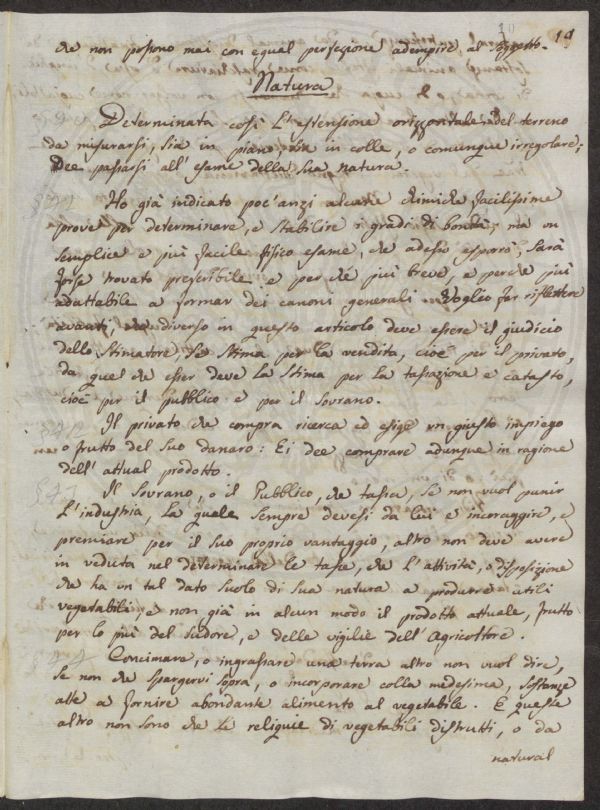 10 10
che non possono mai con egual perfezione adempire al soggetto.
Natura
Determinata così l'estensione orizzontale del terreno
da misurarsi, sia in piano, sia in colle, o comunque irregolare;
Dee passarsi all'esame della sua natura.
Ho già indicato poc'anzi alcune chimiche facilissime
prove per determinare, e stabilire i gradi di bontà; ma un
semplice e più facile fisico esame, che adesso esporrò, sarà
forse trovato preferibile e per che più breve, e perche più
adattabile a formar dei canoni generali. Voglio far riflettere
avanti, che diverso in questo articolo deve essere il giudicio
dello Stimatore, se stima per la vendita, cioè per il privato,
da quel che esser deve la stima per la tassazione e catasto,
cioè per il pubblico e per il Sovrano.
Il privato che compra ricerca ed esige un giusto impiego
o frutto del suo danaro: Ei dee comprare adunque in ragione
dell'attual prodotto.
Il Sovrano, o il Pubblico, che tassa, se non vuol punir
l'industria, la quale sempre devesi da lui e incoraggire, e
premiare per il suo proprio vantaggio, altro non deve avere
in veduta nel determinare le tasse, che l'attività, o disposizione
che ha un tal dato suolo di sua natura a produrre utili
vegetabili, e non già in alcun modo il prodotto attuale, frutto
per lo più del sudore, e delle vigilie dell'Agricoltore.
Concimare, o ingrassare una terra altro non vuol dire,
se non che spargervi sopra, o incorporare colla medesima, sostanze
atte a fornire abondante alimento al vegetabile. E queste
altro non sono che le reliquie di vegetabili distrutti, o da
natural